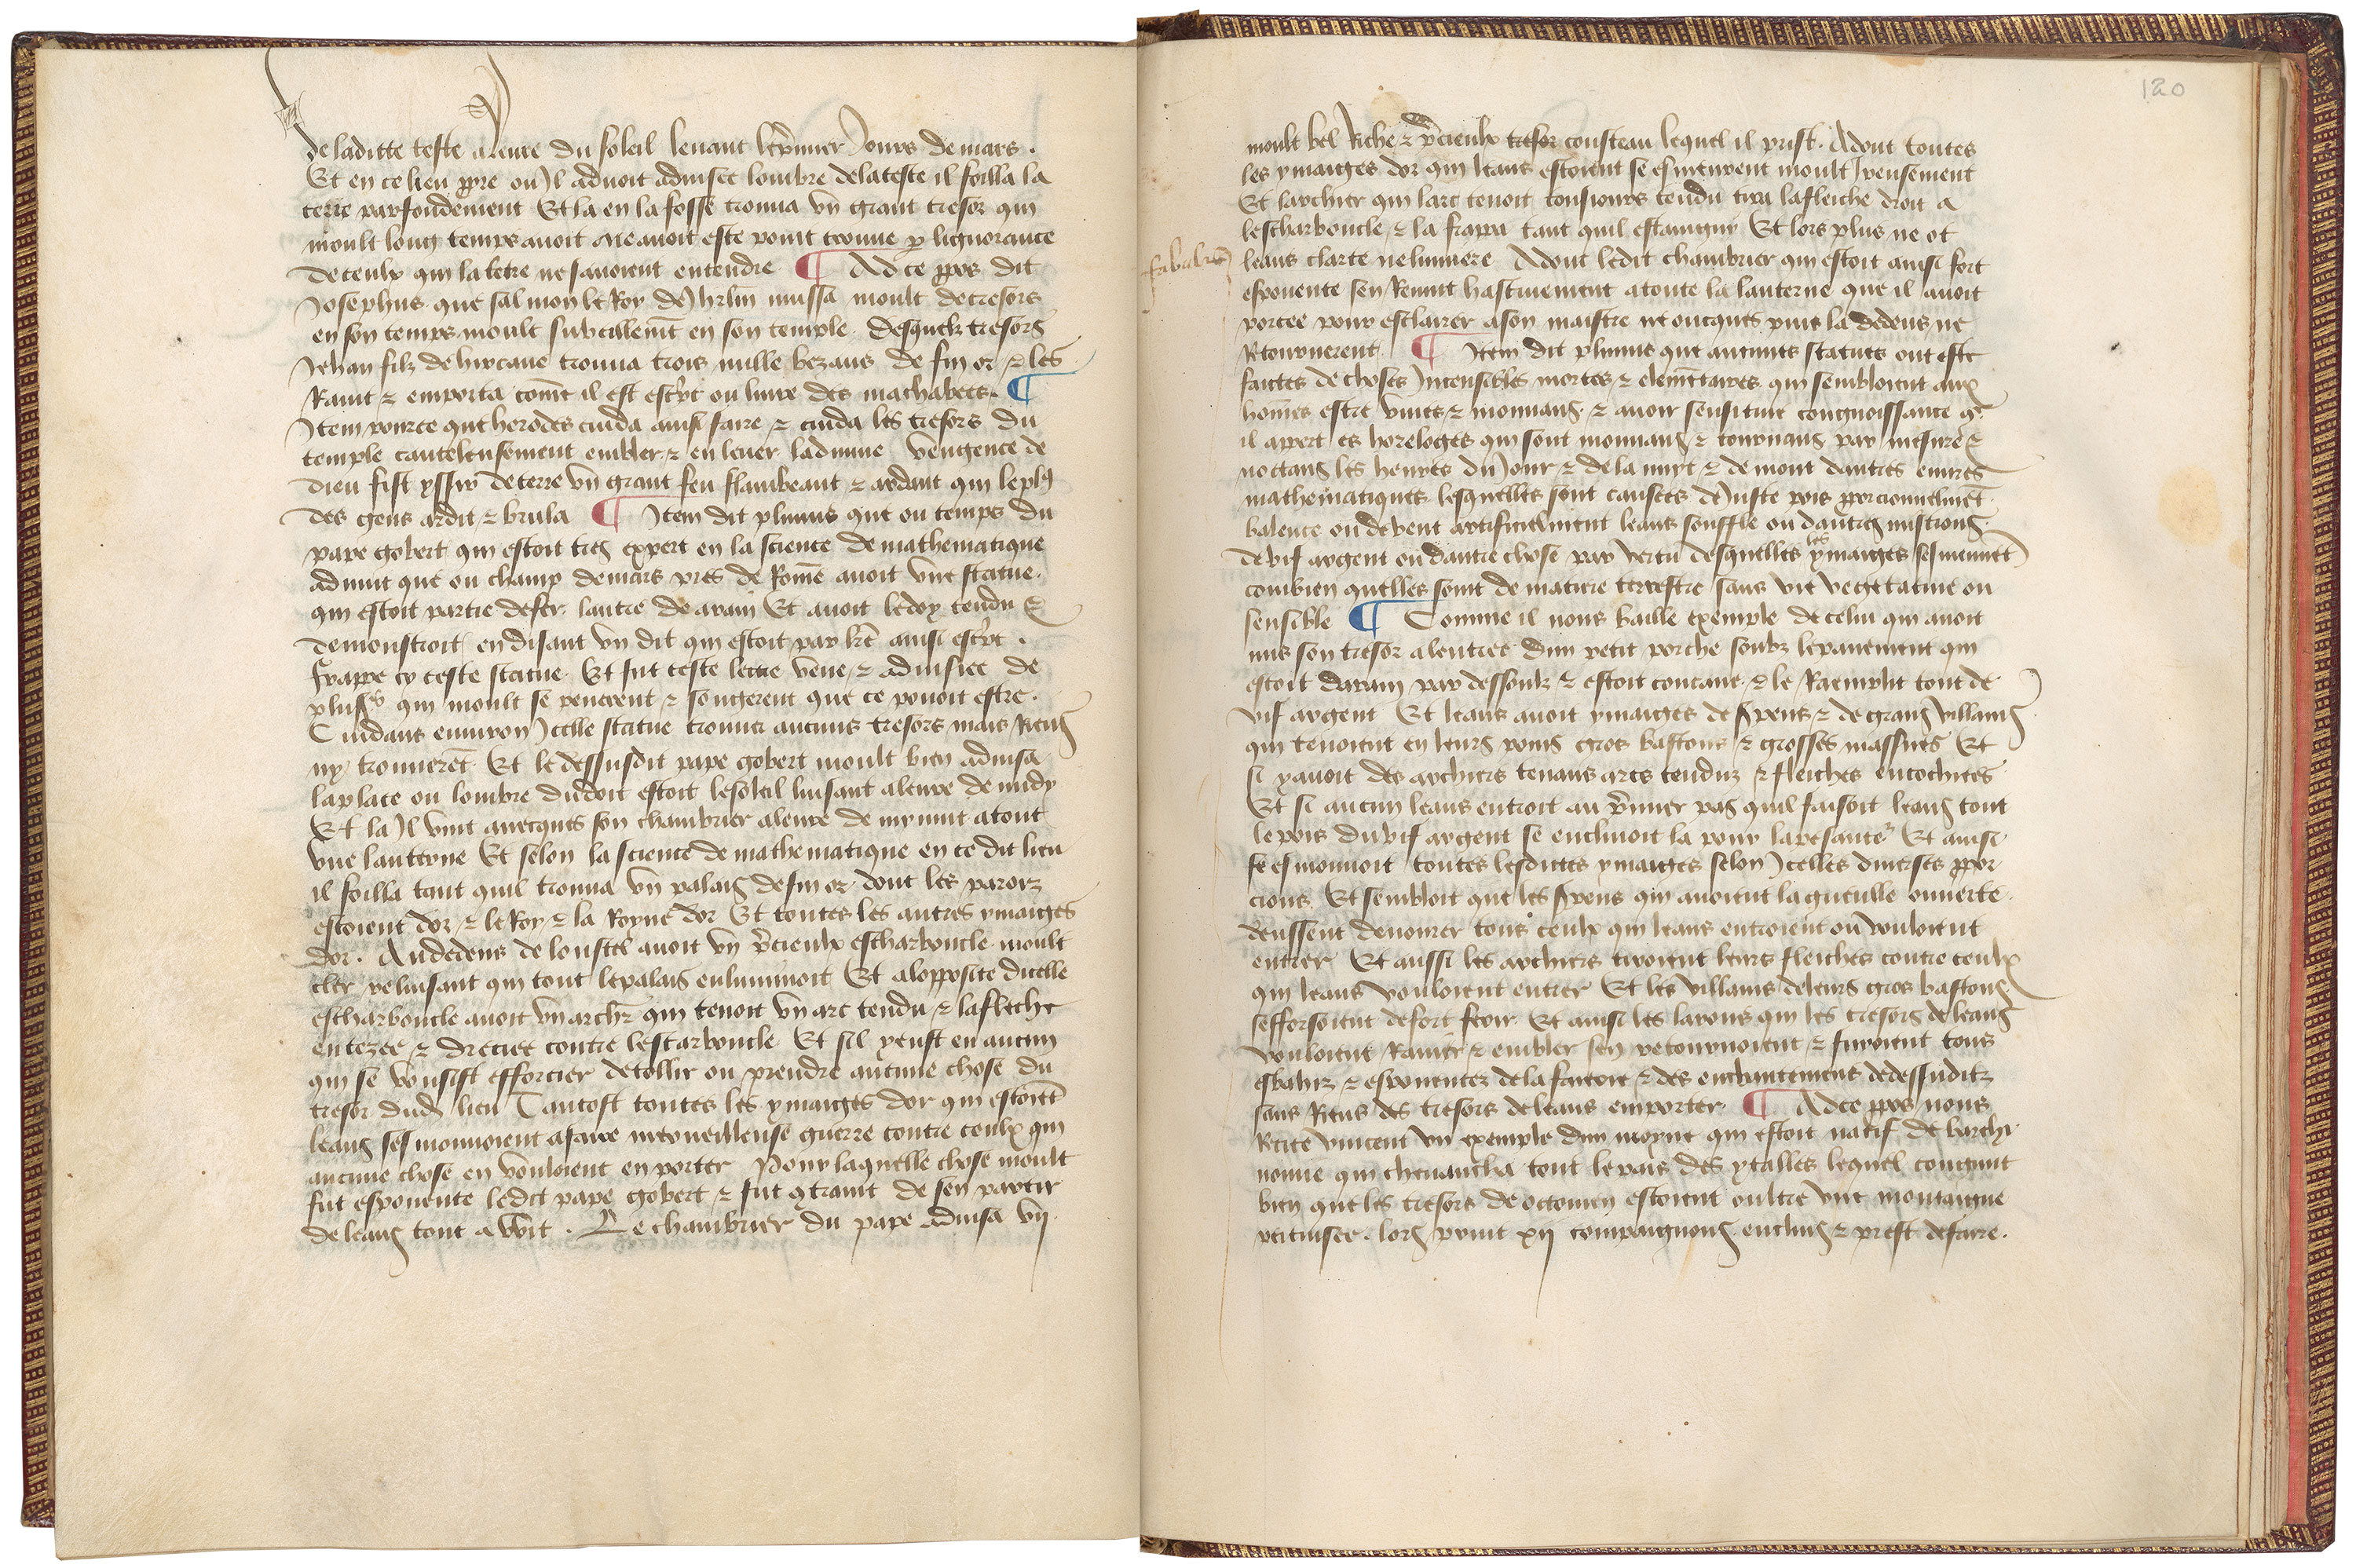 de laditte teste a leure du soleil levant le p̄mier Jours de mars .
Et en ce lieu ppre ou Il advoit advisee lombre de la teste il foilla la
terre parfondement Et la en la fosse trouua vn grant tresor qui
moult long temps auoit ne auoit este point trouue p lignorance
de ceulx qui la letre ne sauoient entendre ¶ Ad ce ppos dit
Josephus que salmon le Roy de Jhrlm̄ mussa moult de tresors
en son temps moult subtillemēt en son temple . desquelz tresors
Jehan filz de hircane trouua trois mille bezans de fin or / ⁊ les
Rauit ⁊ emporta com̄e il est escp̄t ou liure des machabees . ¶
Item pource que herodes cuida ainsi faire / ⁊ cuida les tresors du
temple cauteleusement embler ⁊ en leuer ladiuine vengence de
dieu fist yssir de terre vn grant feu flambeant ⁊ ardant qui le pl9
des gens ardit ⁊ brula ¶ Item dit plinius que ou temps du
pape gobert qui estoit tres expert en la science de mathematique
aduint que ou champ de mars pres de Rome auoit vne statue .
qui estoit partie de fer lautre de arain Et auoit le doy tendu ⁊
demonstroit en disant vn dit qui estoit par lr̄e ainsi escp̄t .
frappe cy ceste statue . Et fut ceste lectre veue ⁊ aduisee de
plus̉s qui moult se penerent ⁊ songerent que ce pouoit estre .
Cuidans enuiron Icelle statue trouuer aucuns tresors mais Riens
ny trouuerēt Et le dessusdit pape gobert moult bien aduisa
la place ou lombre du doit estoit le soleil luisant a leure de midy
Et la Il vint auecques son chambrier a leure de mynuit a tout
vne lanterne Et selon la science de mathematique en ce dit lieu
il foilla tant quil trouua vn palais de fin or dont les paroiz
estoient dor / ⁊ le Roy ⁊ la Royne dor Et toutes les autres ymaiges
dor . Au dedens de loustel auoit vn p̄cieulx escharboucle moult
cler reluisant qui tout le palais enluminoit Et a lopposite dicelle
escharboucle auoit vn archr̄ qui tenoit vn arc tendu ⁊ la flesche
entezee ⁊ dreciee contre lescarboucle Et sil y eust en aucun
qui se vousist efforcier de tollir ou prendre aucune chose du
tresor dud lieu Tantost toutes les ymaiges dor qui estoiēt
leans ses mouuoient a faire merueilleuse guerre contre ceulx qui
aucune chose en vouloient en porter Pour laquelle chose moult
fut espouente ledit pape gobert ⁊ fut 9traint de sen partir
de leans tout a voit . Le chambrier du pape aduisa vn
120
moult bel Riche ⁊ p̄cieulx tresor cousteau lequel il prist . Adont toutes
les ymaiges dor qui leans estoient se esmeurent moult Ireusement
Et larchier qui larc tenoit tousiours tendu tira la fleiche droit a
lescharboucle ⁊ la frapa tant quil estaingny Et lors plus ne ot
leans clarte ne lumiere Adont ledit chambrier qui estoit ainsi fort
espouente sen Reuint hastiuement a toute la lanterne que il auoit
portee pour esclairer a son maistre ne oncques puis la dedens ne
Rtournerent . ¶ Item dit plinius que aucunes statues ont este
faictes de choses Incensibles mortes ⁊ elemētaires qui sembloient aux
hom̄es estre viues ⁊ mouuans . ⁊ auoir sensitiue congnoissance 9e
il appert es horeloges qui sont mouuans ⁊ tournans par mesure ⁊
noctans les heures du Jour ⁊ de la nuyt ⁊ de mont dautres euures
mathematiques lesquelles sont causees de Juste pois pporcionnelmēt .
balence ou de vent artificielment leans souffle ou dautres mistions
de vif argent ou dautre chose par vertu desquelles les ymaiges sesmeuuēt
combien quelles soint de matiere terrestre sans vie vegetatiue ou
sensible ¶ Comme il nous baille exemple de celui qui auoit
mis son tresor a lentree dun petit porche soubz le pauement qui
estoit darain par dessoubz ⁊ estoit concaue . ⁊ le Raemplit tout de
vif argent Et leans auoit ymaiges de sp̄ens ⁊ de grans villains
qui tenoient en leurs poins gros bastons ⁊ grosses massues Et
si y auoit des archiers tenans arcs tenduz ⁊ fleiches encochees
Et si aucun leans entroit au p̄mier pas quil faisoit leans tout
le pois du vif argent se enclinoit la pour la pesante^r Et ainsi
se esmouuoit toutes lesdittes ymaiges selon Icelles diuerses ppor
cions . Et sembloit que les sp̄ens qui auoient la gueulle ouuerte
deussent deuourer tous ceulx qui leans entroient ou vouloient
entrer Et aussi les archiers tiroient leurs fleiches contre ceulx
qui leans vouloient entrer Et les villains de leurs gros bastons
sefforsoient de fort ferir . Et ainsi les larons qui les tresors de leans
vouloient Rauir ⁊ embler sen retournoient ⁊ fuioient tous
esbahiz ⁊ espouentez de la faicture ⁊ des enchantemens dedessudits
sans Riens des tresors de leans emporter ¶ Ad ce ppos nous
Rcite vincent vn exemple dun moyne qui estoit natif de barche
nonne qui cheuaucha tout le pais des ytalles lequel congnut
bien que les tresors de octouien estoient oultre vne montaigne
pertuisee . lors print xii compaignons enclins ⁊ prest de faire .